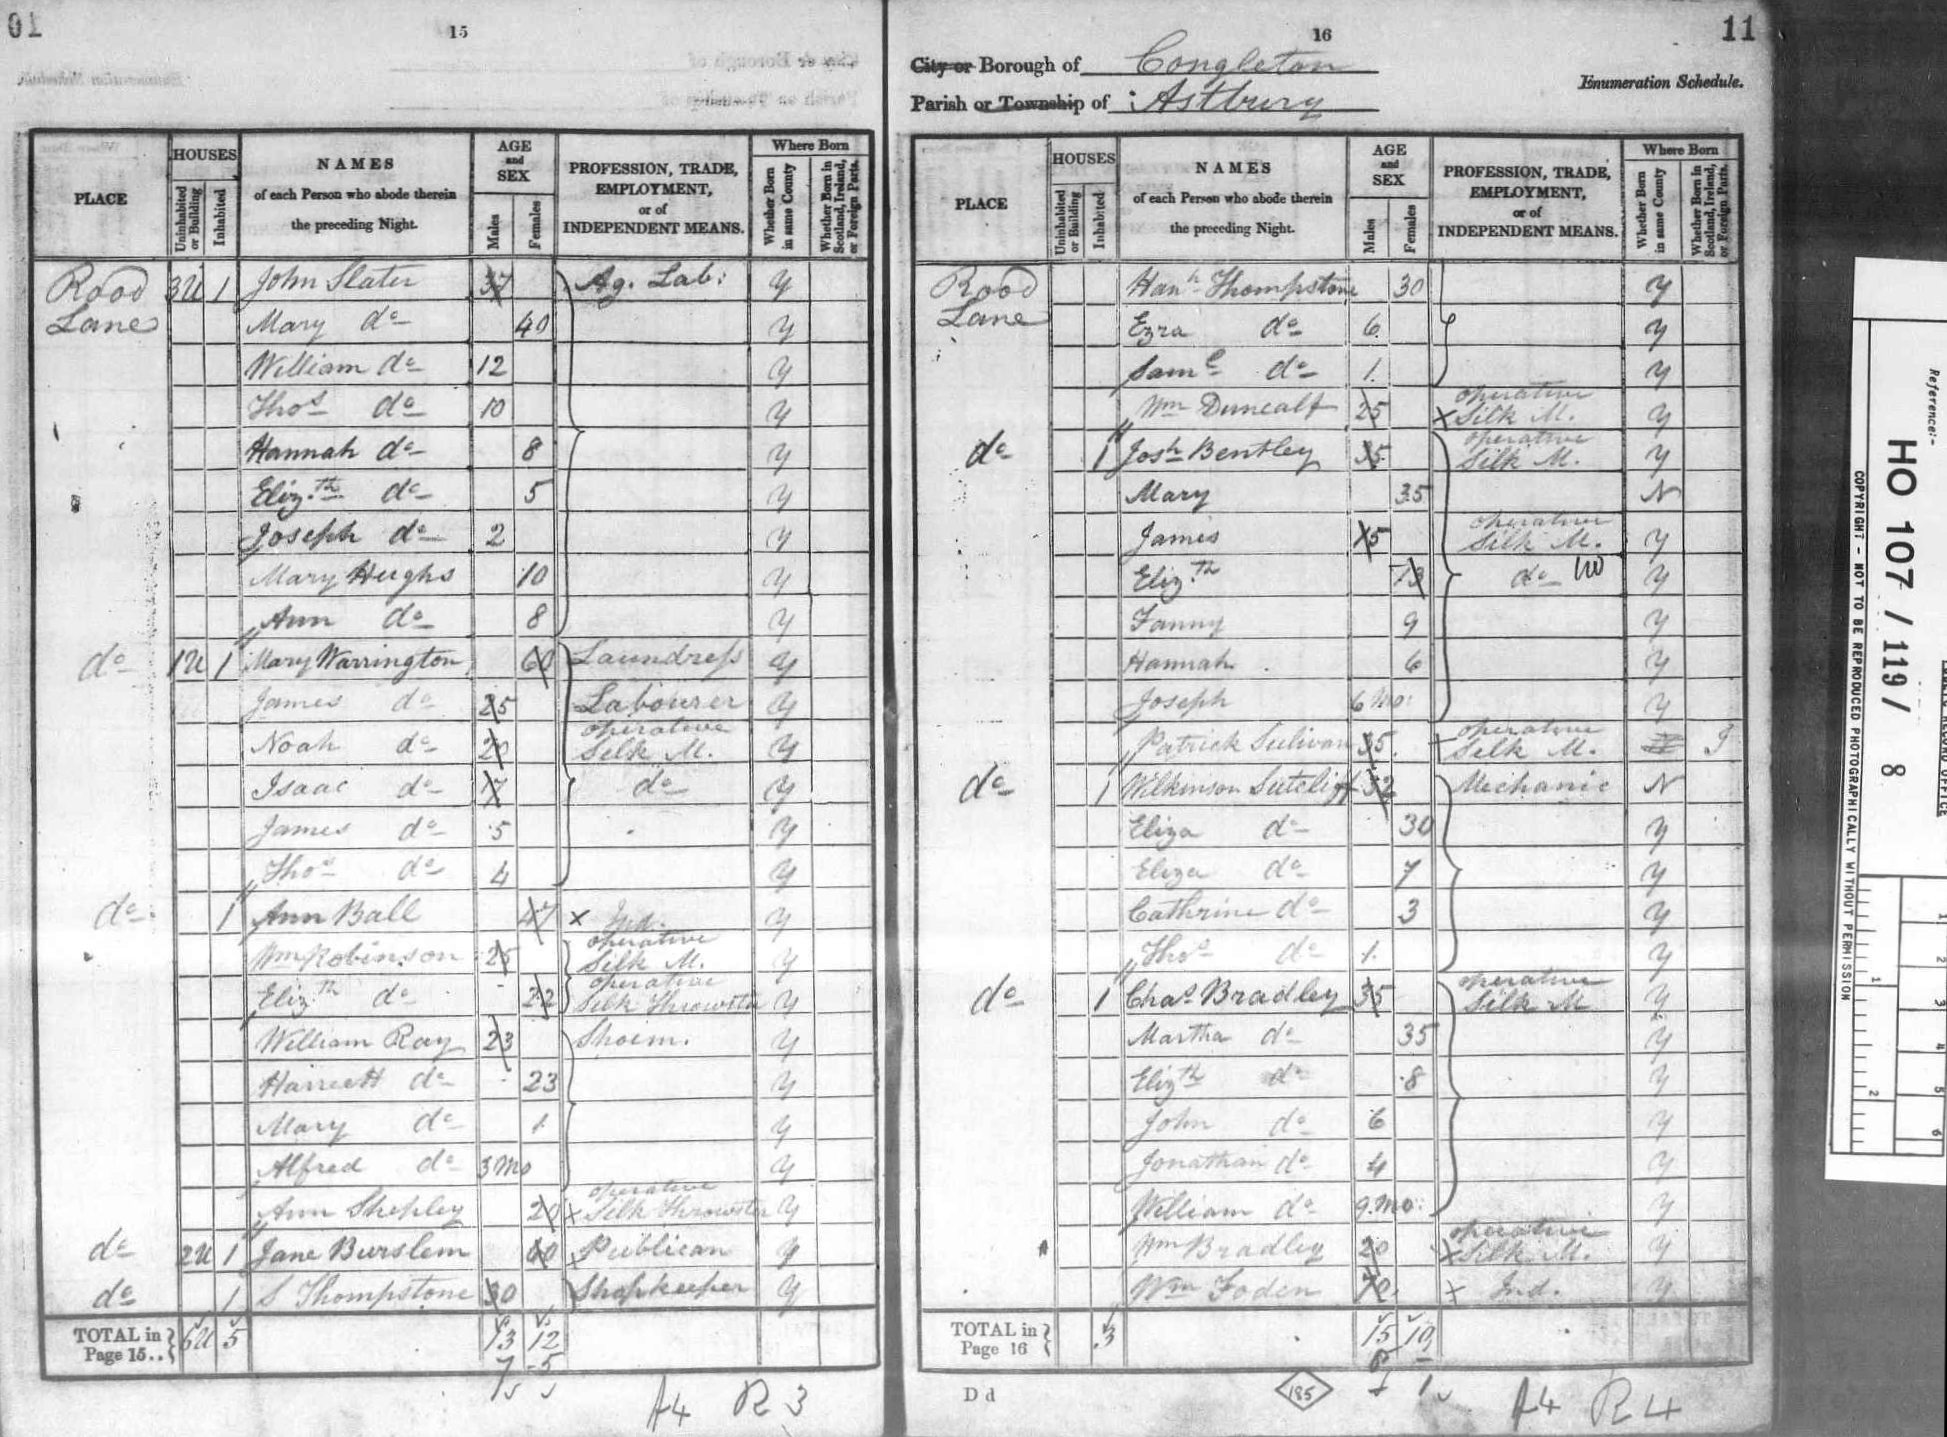 01
15
PLACE
HOUSES
Uninhabited or Building
Inhabited
NAMES
of each Person who abode therein
the preceding Night.
AGE and SEX
Males
Females
PROFESSION, TRADE, EMPLOYMENT, or of INDEPENDENT MEANS.
Where Born
Whether Born in same County
Whether Born in Scotland, Ireland, or Foreign Parts.
Rood 3U 1 John Slater 37 Ag. Lab: Y
Lane Mary do 40 Y
William do 12 Y
Thos do 10 Y
Hannah do 8 Y
Eliz.th do 5 Y
Joseph do 2 Y
Mary Hughs 10 Y
Ann do 8 Y
do 1U 1 Mary Warrington 60 Laundress Y
James do 25 Labourer Y
Noah do 20 operative Silk M. Y
Isaac do 7 do Y
James do 5 Y
Thos do 4 Y
do 1 Ann Ball 47 x Ind. Y
Wm Robinson 25 operative Silk M. Y
Eliz.th do 22 operative Silk Throwster Y
William Ray 23 Shoem. Y
Harriett do 23 Y
Mary do 1 Y
Alfred do 3 Mo Y
Ann Shepley 20 x operative Silk Throwster Y
do 2U 1 Jane Burslem 60 x Publican Y
do 1 S Thompstone 30 Shopkeeper Y
TOTAL in Page 15.. 6U 5 13 12
7 5
A4 R3
16
11
City or Borough of Congleton
Enumeration Schedule.
Parish or Township of Astbury
PLACE
HOUSES
Uninhabited or Building
Inhabited
NAMES
of each Person who abode therein
the preceding Night.
AGE and SEX
Males
Females
PROFESSION, TRADE, EMPLOYMENT, or of INDEPENDENT MEANS.
Where Born
Whether Born in same County
Whether Born in Scotland, Ireland, or Foreign Parts.
Rood Hanh Thompstone 30 Y
Lane Ezra do 6 Y
Saml do 1 Y
Wm Duncalf 25 x operative Silk M. Y
do 1 Josh Bentley 35 operative Silk M. Y
Mary 35 N
James 15 operative Silk M. Y
Eliz.th 13 do Y
Fanny 9 Y
Hannah 6 Y
Joseph 6 Mo: Y
Patrick Sulivan 35 operative Silk M. I
do 1 Wilkinson Sutcliff 32 Mechanic N
Eliza do 30 Y
Eliza do 7 Y
Cathrine do 3 Y
Thos do 1 Y
do 1 Chas Bradley 35 operative Silk M Y
Martha do 35 Y
Elizth do 8 Y
John do 6 Y
Jonathan do 4 Y
William do 9 Mo: Y
Wm Bradley 20 x operative Silk M. Y
Wm Foden 70 x Ind. Y
TOTAL in Page 16 3 15 10
D d
185
A4 R4
Reference:-
HO 107 / 119 / 8
COPYRIGHT - NOT TO BE REPRODUCED PHOTOGRAPHICALLY WITHOUT PERMISSION
1
2
3
4
5
6
1
2